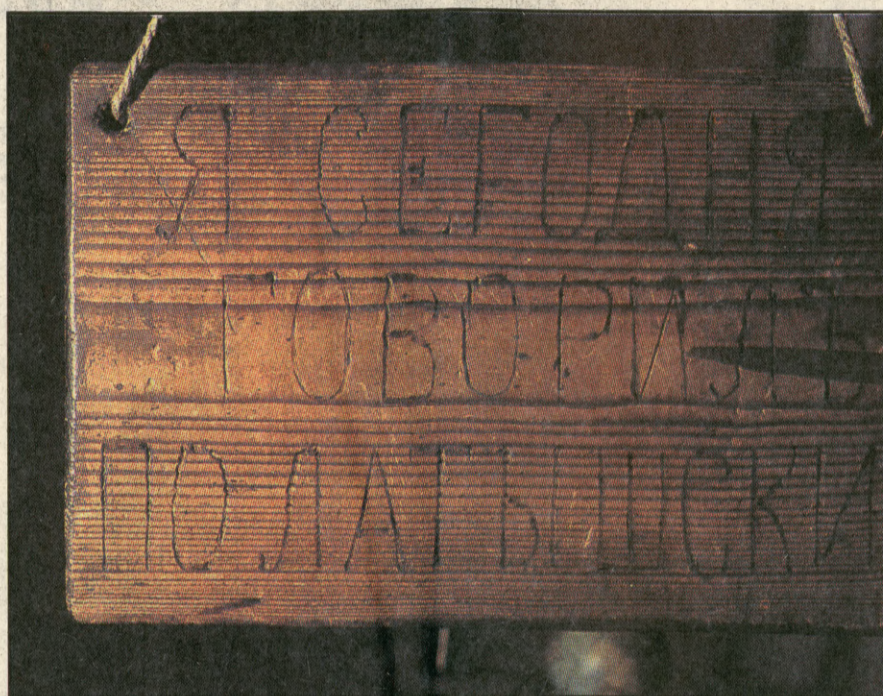 Я СЕГОДНЯ
ГОВОРИЛЪ
ПО ЛАТЫШСКИ